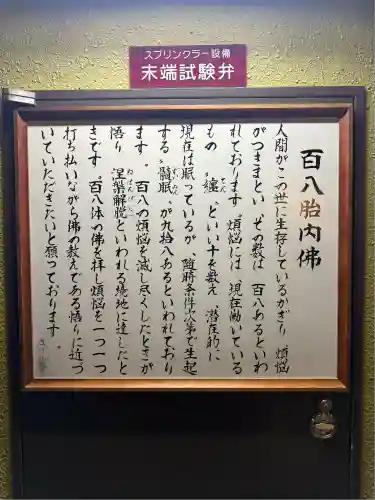 スプリンクラー設備
末端試験弁
百八胎内佛
人間がこの世に生存しているかぎり 煩悩
がつきまとい、その数は 百八あるといわ
れております。煩悩には 現在働いている
もの〝纏〟といい十を数え 潜在的に
現在は眠っているが、随時条件次第で生起
する〝随眠〟が九拾八あるといわれており
ます。 百八の煩悩を滅し尽くしたときが
悟り 涅槃解脱といわれる境地に達したと
きです。百八体の佛を拝し煩悩を一つ一つ
打ち払いながら佛の教えである悟りに近づ
いていただきたいと願っております。